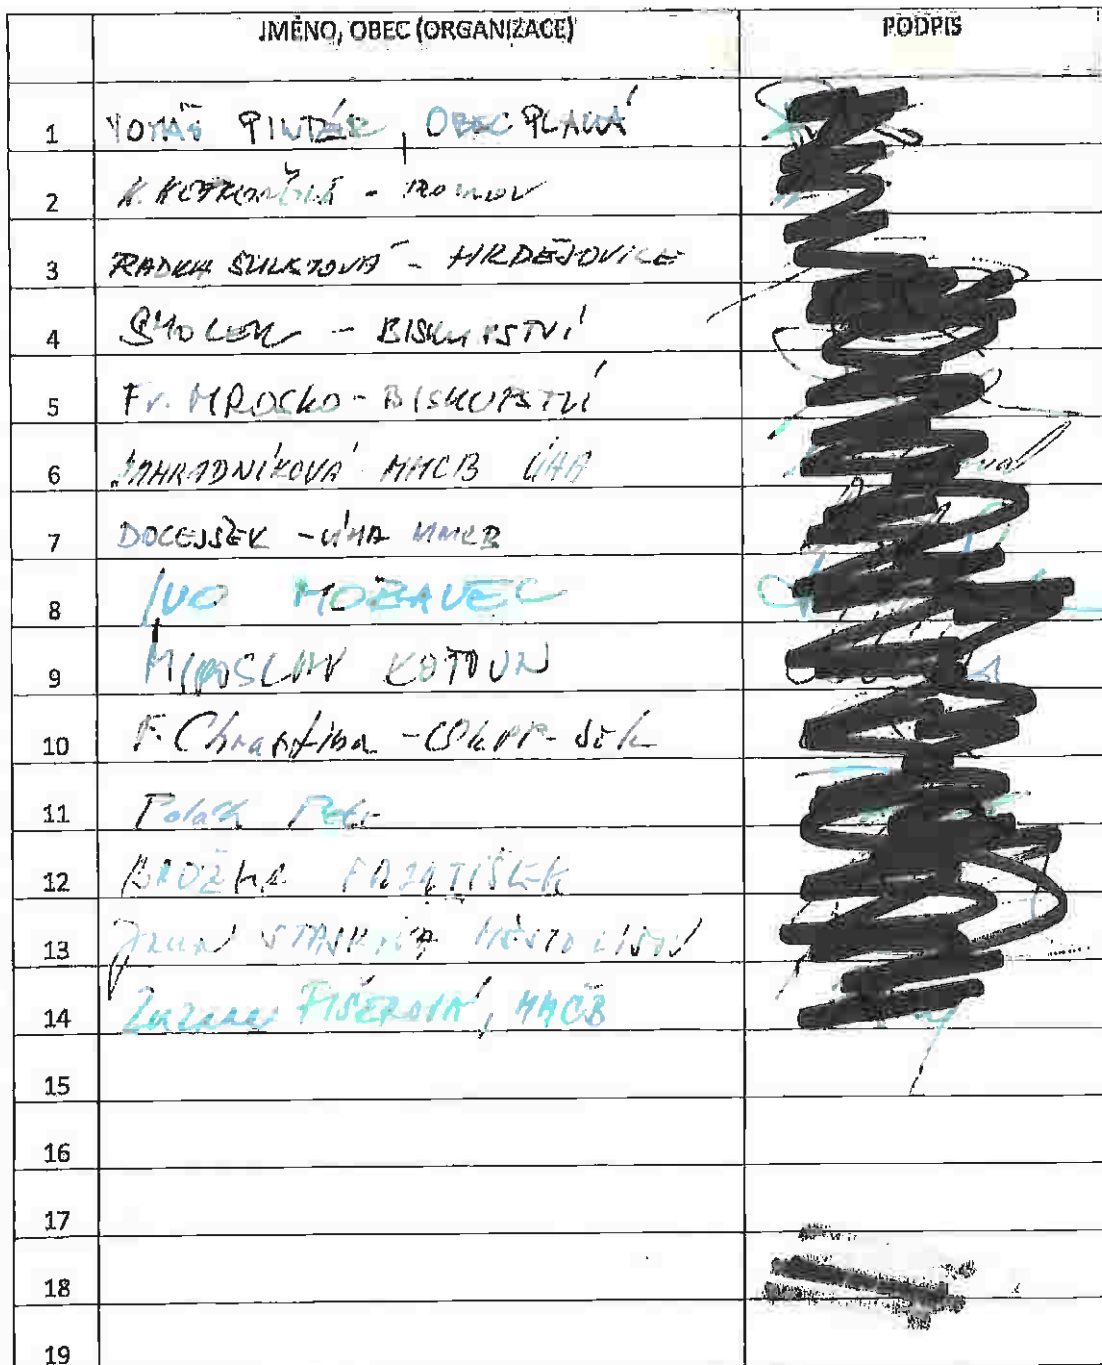 JMÉNO, OBEC (ORGANIZACE) PODPIS
1 TOMÁŠ PINTÉR, OBEC PLANÁ
2 K.
3 RADKA HRDĚJOVICE
4 SMOLEK - BISKUPSTVÍ
5 Fr. MROSKO - BISKUPSTVÍ
6 ZAHRADNÍKOVÁ MMCB ÚHA
7 DOCEJŠEK - ÚHA MMCB
8 IVO MORAVEC
9 MIROSLAV KOTOUN
10 F. Chrastina
11 Polák Petr
12 BROŽKA FRANTIŠEK
13 MĚSTO
14 Zuzana FIŠEROVÁ, MMČB
15
16
17
18
19